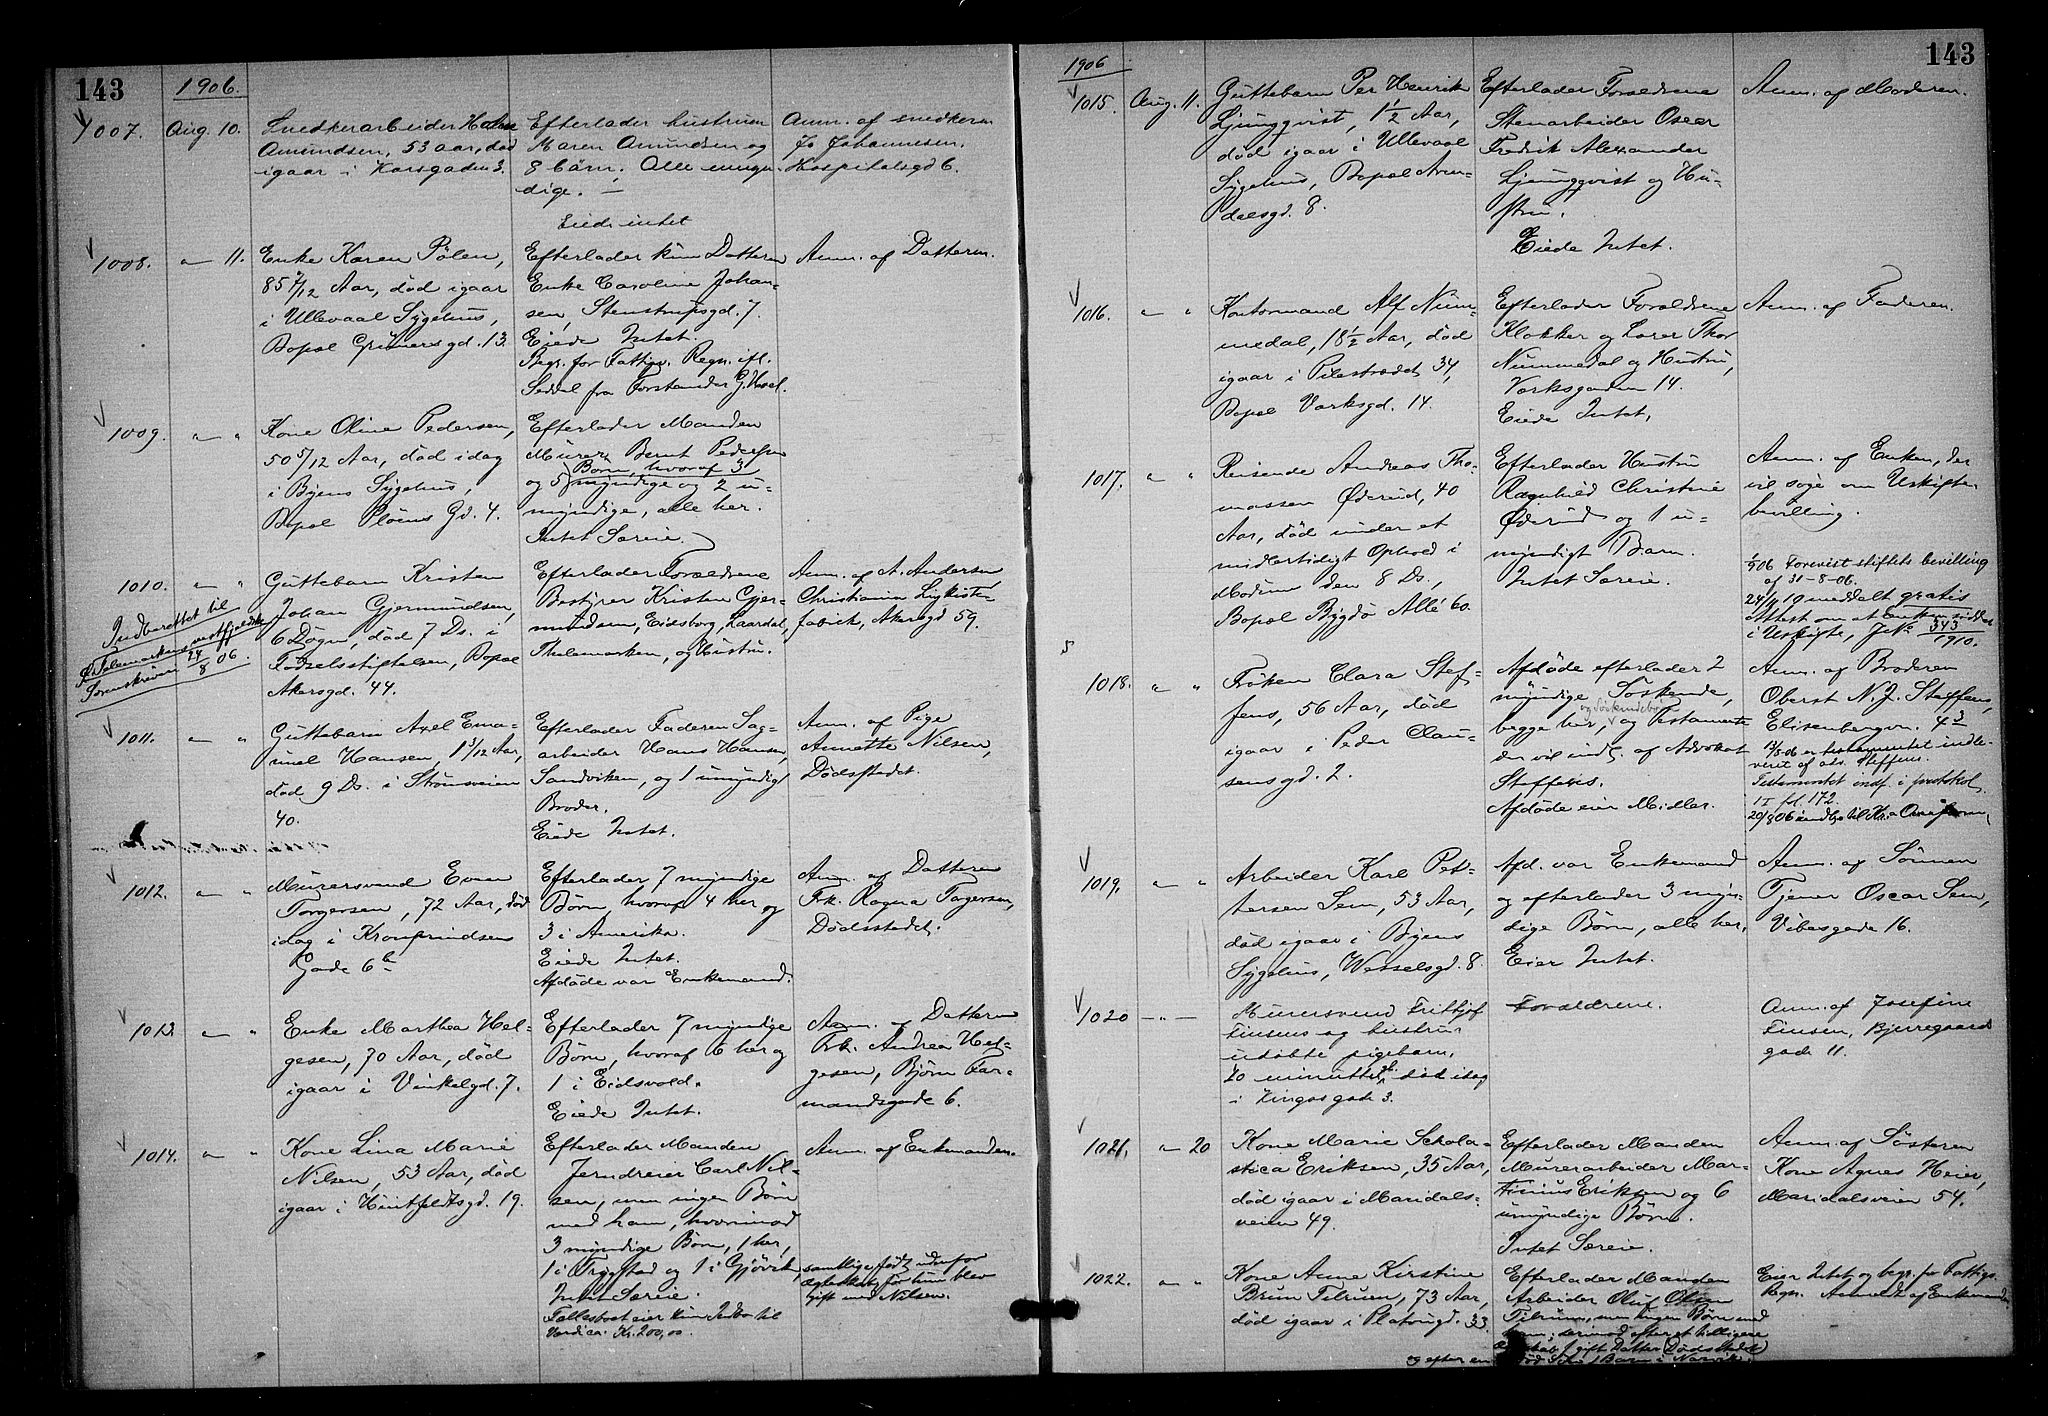 143
1906.
1007. Aug. 10.
Snedkerarbeider Hans
Amundsen, 53 aar, død
igaar i Korsgaden 3.
Efterlader hustruen
Maren Amundsen og
8 børn. Alle umyn-
dige. —
Eiede intet
Anm. af snedkerm
Jo Johannesen.
Hospitalsgd 6.
1008. " 11.
Enke Karen Pølen,
85 7/12 Aar, død igaar
i Ullevaal Sygehus,
Bopæl Grünersgd. 13.
Efterlader kun Datteren
Enke Caroline Johan-
sen, Stenstrupsgd. 7.
Eiede Intet.
Begr. for Fattigv. Regn. ifl.
Seddel fra Forstander G. Hoel.
Anm. af Datteren.
1009. " "
Kone Oline Pedersen,
50 5/12 Aar, død idag
i Byens Sygehus,
Bopæl Pløens Gd. 4.
Efterlader Manden
Murer Bernt Pedersen
og 5 Børn, hvoraf 3
myndige og 2 u-
myndige, alle her.
Intet Særeie.
1010. " "
Indberettet til
Ø. Telemarkens vestfjeldske
Sorenskriveri 24/8 06.
Guttebarn Kristen
Johan Gjermundsen,
6 Døgn, død 7 Ds. i
Fødselsstiftelsen, Bopæl
Akersgd. 44.
Efterlader Forældrene
Bestyrer Kristen Gjer-
mundsen, Eidsborg, Laardal,
Thelemarken, og Hustru.
Anm. af A. Andersen
Christiania Ligkiste-
fabrik, Akersgd 59.
1011. " "
Guttebarn Axel Ema-
nuel Hansen, 1 3/12 Aar,
død 9 Ds. i Strømsveien
40.
Efterlader Faderen Sag-
arbeider Hans Hansen,
Sandviken, og 1 umyndig
Broder.
Eiede Intet.
Anm. af Pige
Annette Nilsen,
Dødsstedet.
1012. " "
Murersvend Even
Torgersen, 72 Aar, død
idag i Kronprindsens
Gade 6b
Efterlader 7 myndige
Børn, hvoraf 4 her og
3 i Amerika.
Eiede Intet.
Afdøde var Enkemand.
Anm. af Datteren
Frk. Ragna Torgersen,
Dødsstedet.
1013. " "
Enke Marthea Hel-
gesen, 70 Aar, død
igaar i Vinkelgd. 7.
Efterlader 7 myndige
Børn, hvoraf 6 her og
1 i Eidsvold.
Eiede Intet.
Anm. af Datteren
Frk. Andrea Hel-
gesen, Bjørn Far-
mandsgade 6.
1014. " "
Kone Lina Marie
Nilsen, 53 Aar, død
igaar i Huitfeldtsgd. 19.
Efterlader Manden
Jerndreier Carl Nil-
sen, men ingen Børn
med ham, hvorimod
3 myndige Børn, 1 her,
1 i Trygstad og 1 i Gjøvik,
samtlige født udenfor
Ægteskab, før hun blev
gift med Nilsen.
Intet Særeie.
Fællesboet eier kun Indbo til
Værdi ca. Kr. 200,00.
Anm. af Enkemanden.
143
1906
1015. Aug. 11.
Guttebarn Per Henrik
Ljungqvist, 1 1/2 Aar,
død igaar i Ullevaal
Sygehus, Bopæl Aren-
dalsgd. 8.
Efterlader Forældrene
Stenarbeider Oscar
Fredrik Alexander
Ljungqvist og Hu-
stru.
Eiede Intet.
Anm. af Moderen.
1016. " "
Kontormand Alf Num-
medal, 18 1/2 Aar, død
igaar i Pilestrædet 34,
Bopæl Vorksgd. 14.
Efterlader Forældrene
Klokker og Lærer Thor
Nummedal og Hustru,
Vorksgaden 14.
Eiede Intet.
Anm. af Faderen.
1017. " "
Reisende Andreas Tho-
massen Øderud, 40
Aar, død under et
midlertidigt Ophold i
Modum den 8 Ds.,
Bopæl Bygdø Allé 60.
Efterlader Hustru
Ragnhild Christine
Øderud og 1 u-
myndigt Barn.
Intet Særeie.
Anm. af Enken, der
vil søge om Uskifte-
bevilling.
1/9 06 Forevist stiftets bevilling
af 31-8-06.
24/9 1910 meddelt gratis
Attest om at Enken sidder
i Uskifte, JNo 543/1910.
5
1018. " "
Frøken Clara Stef-
fens, 56 Aar, død
igaar i Peder Clau-
sensgd. 2.
Afdøde efterlader 2
myndige Søskende,
og Søskendebørn
begge her, og Testamente
der vil indl. af Advokat
Steffens.
Afdøde eier Midler.
Anm. af Broderen
Oberst N. J. Steffens,
Elisenbergvn. 4
13/8 06 er testamentet indle-
veret af adv. Steffens.
Testamentet indf. i protokol
1 I fol. 172.
20/8 06
1019. " "
Arbeider Karl Pet-
tersen Sem, 53 Aar,
død igaar i Byens
Sygehus, Wesselsgd. 8.
Afd. var Enkemand
og efterlader 3 myn-
dige Børn, alle her.
Eier Intet.
Anm. af Sønnen
Tjener Oscar Sem,
Vibesgade 16.
1020 — " —
Murersvend Frithjof
Finsens og hustrus
udøbte pigebarn,
20 minutter, død idag
i Kingosgade 3.
Forældrene.
Anm. af Josefine
Finsen, Bjerregaards
gade 11.
1021. " 20
Kone Marie Schola-
stica Eriksen, 35 Aar,
død igaar i Maridals-
veien 49.
Efterlader Manden
Murerarbeider Mar-
tinius Eriksen og 6
umyndige Børn.
Intet Særeie.
Anm. af Søsteren
Kone Agnes Heier,
Maridalsveien 54.
1022. " "
Kone Anne Kirstine
Brun Tilrum, 73 Aar,
død igaar i Platougd. 33.
Efterlader Manden
Arbeider Oluf Olsen
Tilrum, men ingen Børn med
ham; derimod efter et tidligere
Ægteskab 1 gift Datter (Dødsstedet)
og efter en død Søn 1 Barn i Narvik
Eier Intet og begr. for Fattigv.
Regn. Anmeldt af Enkemanden.